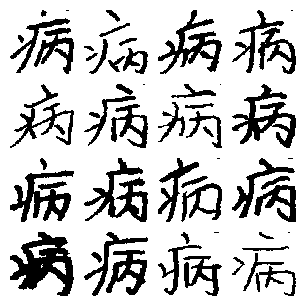 病病病病
病病病病
病病病病
病病病病